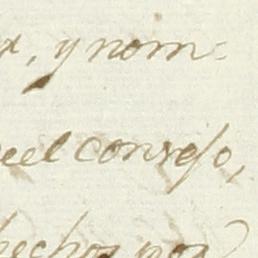 a, y nom=
el consejo,
hechos por